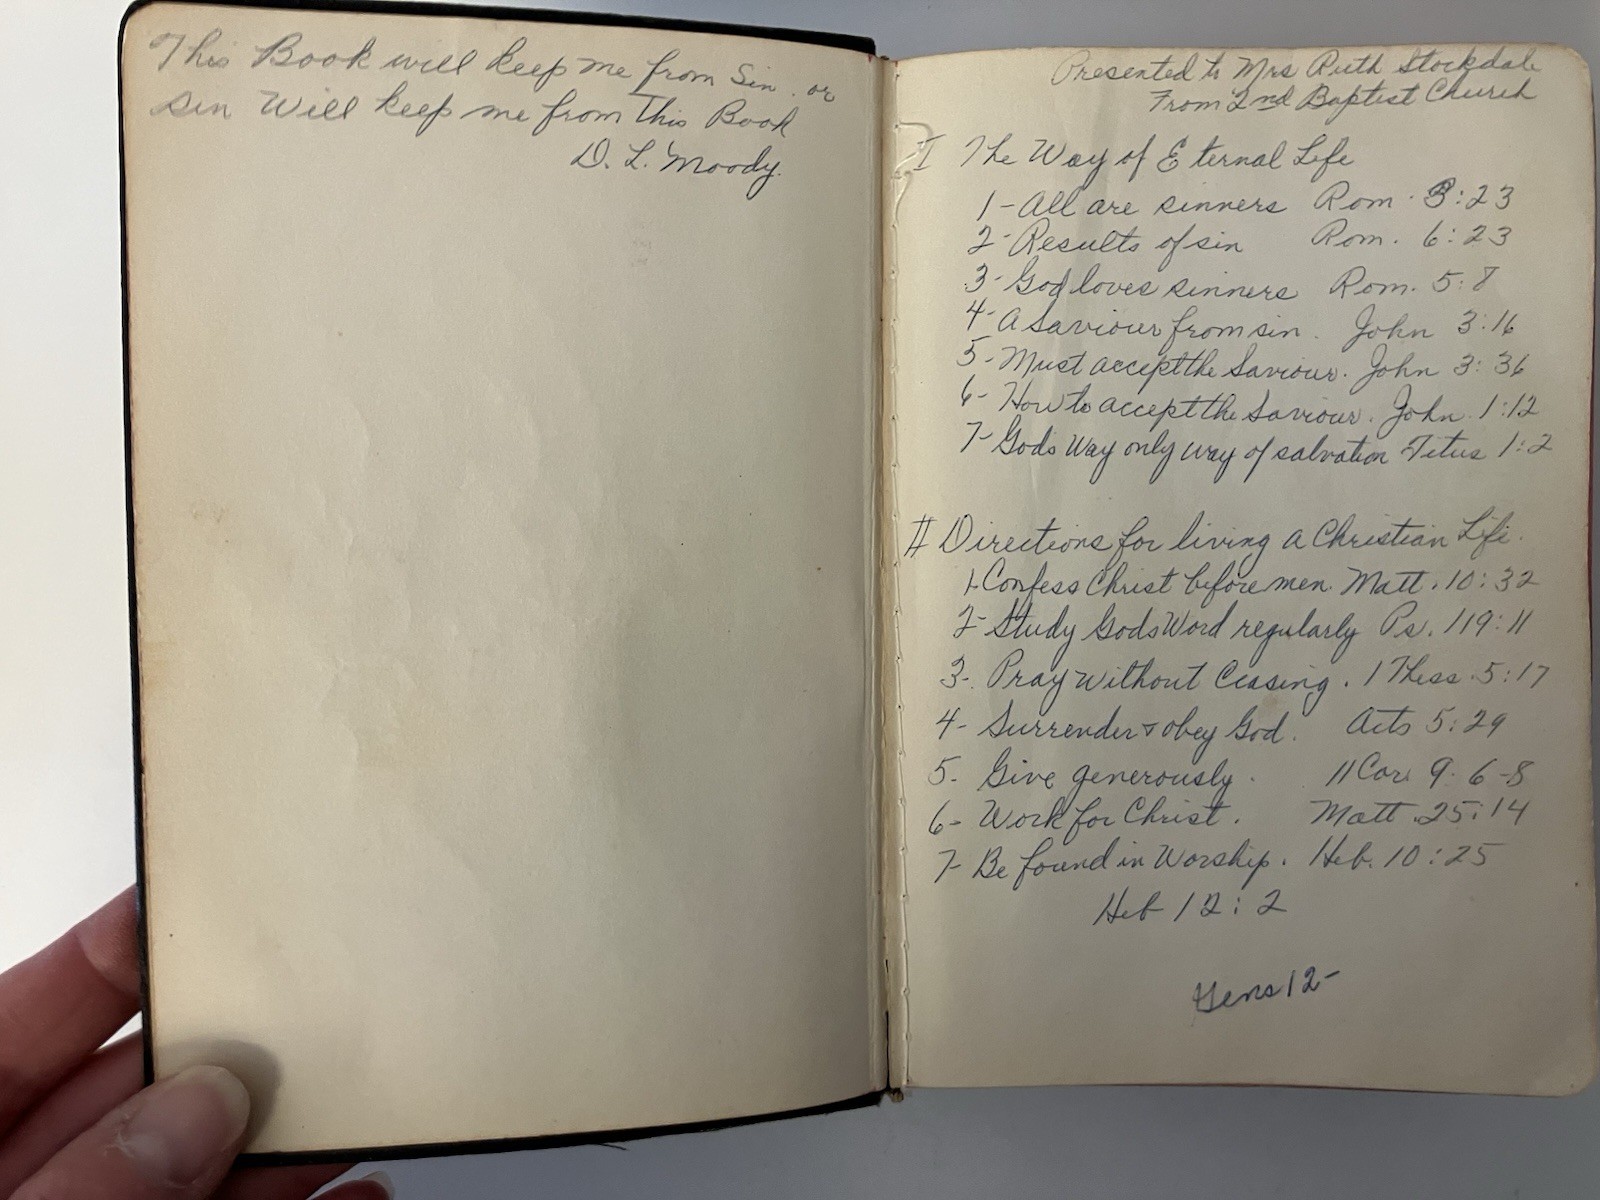 This Book will keep me from Sin. or
sin Will keep me from This Book
D. L. Moody.
Presented to Mrs Ruth Stockdale
From 2nd Baptist Church
I The Way of Eternal Life
1- All are sinners Rom. 3:23
2- Results of sin Rom. 6:23
3- God loves sinners Rom. 5:8
4- A Saviour from sin. John 3:16
5- Must accept the Saviour. John 3:36
6- How to accept the Saviour. John 1:12
7- Gods Way only way of salvation Titus 1:2
II Directions for living a Christian Life.
1- Confess Christ before men. Matt. 10:32
2- Study Gods Word regularly Ps. 119:11
3- Pray Without Ceasing. 1 Thess. 5:17
4- Surrender & obey God. Acts 5:29
5- Give generously. II Cor. 9:6-8
6- Work for Christ. Matt. 25:14
7- Be found in Worship. Heb. 10:25
Heb 12:2
12-